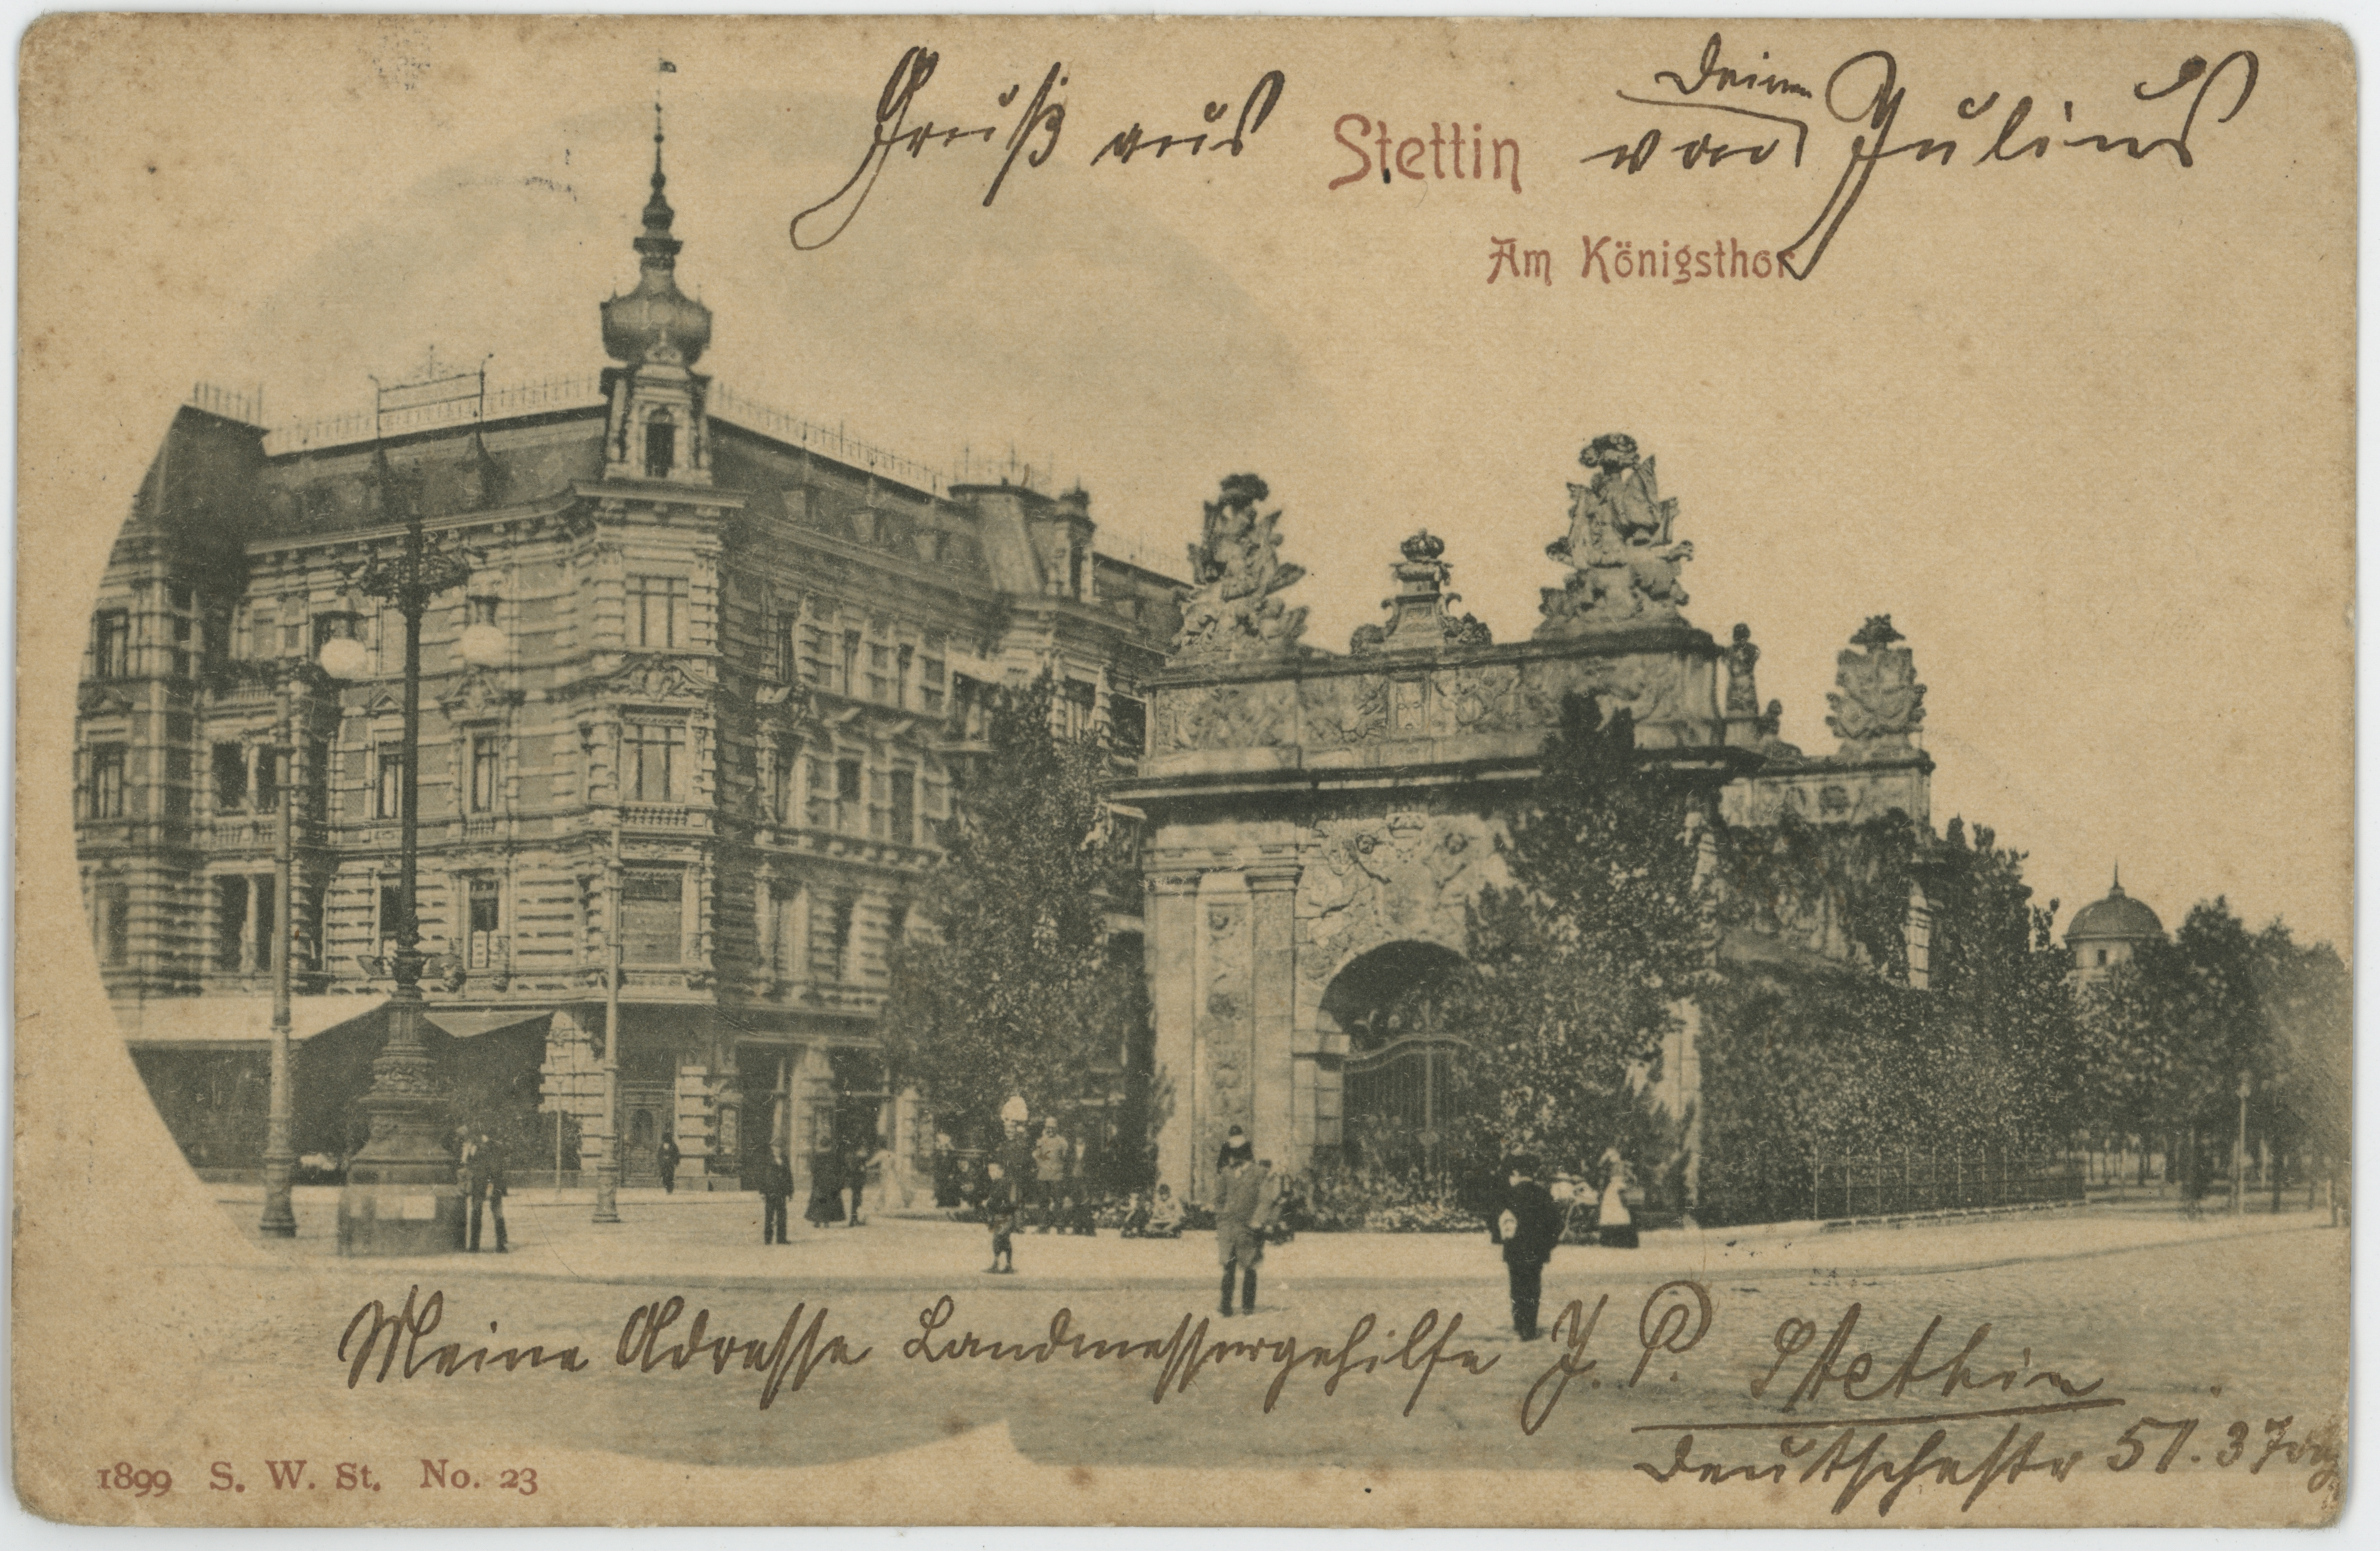 Gruß aus Stettin von deinem Julius
Am Königsthor
Meine Adresse Landmessergehilfe J. P. Stettin
Deutschestr 51. 3
1899 S. W. St. No. 23